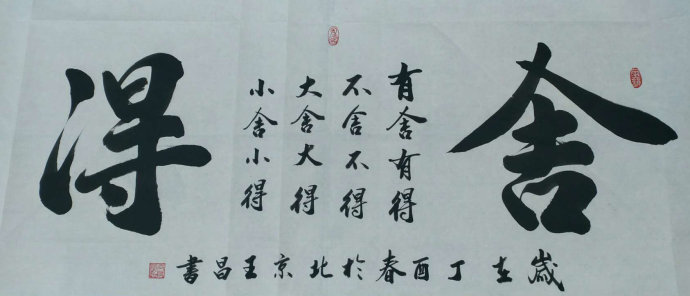 舍得
有舍有得
不舍不得
大舍大得
小舍小得
歲在丁酉春於北京王昌書